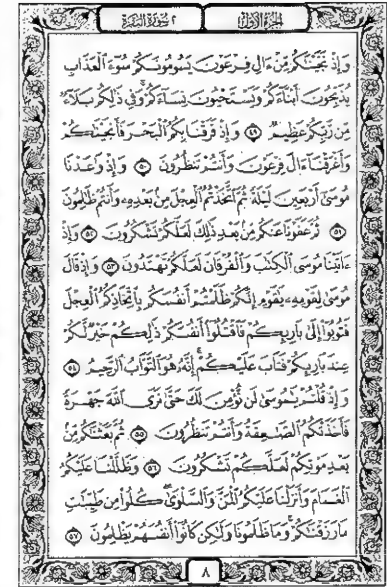 الجزء الأول
٢ سورة البقرة
وَإِذْ نَجَّيْنَـٰكُم مِّنْ ءَالِ فِرْعَوْنَ يَسُومُونَكُمْ سُوٓءَ ٱلْعَذَابِ
يُذَبِّحُونَ أَبْنَآءَكُمْ وَيَسْتَحْيُونَ نِسَآءَكُمْ وَفِى ذَٰلِكُم بَلَآءٌ
مِّن رَّبِّكُمْ عَظِيمٌ ۝٤٩ وَإِذْ فَرَقْنَا بِكُمُ ٱلْبَحْرَ فَأَنجَيْنَـٰكُمْ
وَأَغْرَقْنَآ ءَالَ فِرْعَوْنَ وَأَنتُمْ تَنظُرُونَ ۝٥٠ وَإِذْ وَٰعَدْنَا
مُوسَىٰٓ أَرْبَعِينَ لَيْلَةً ثُمَّ ٱتَّخَذْتُمُ ٱلْعِجْلَ مِنۢ بَعْدِهِۦ وَأَنتُمْ ظَـٰلِمُونَ
۝٥١ ثُمَّ عَفَوْنَا عَنكُم مِّنۢ بَعْدِ ذَٰلِكَ لَعَلَّكُمْ تَشْكُرُونَ ۝٥٢ وَإِذْ
ءَاتَيْنَا مُوسَى ٱلْكِتَـٰبَ وَٱلْفُرْقَانَ لَعَلَّكُمْ تَهْتَدُونَ ۝٥٣ وَإِذْ قَالَ
مُوسَىٰ لِقَوْمِهِۦ يَـٰقَوْمِ إِنَّكُمْ ظَلَمْتُمْ أَنفُسَكُم بِٱتِّخَاذِكُمُ ٱلْعِجْلَ
فَتُوبُوٓا۟ إِلَىٰ بَارِئِكُمْ فَٱقْتُلُوٓا۟ أَنفُسَكُمْ ذَٰلِكُمْ خَيْرٌ لَّكُمْ
عِندَ بَارِئِكُمْ فَتَابَ عَلَيْكُمْ إِنَّهُۥ هُوَ ٱلتَّوَّابُ ٱلرَّحِيمُ ۝٥٤
وَإِذْ قُلْتُمْ يَـٰمُوسَىٰ لَن نُّؤْمِنَ لَكَ حَتَّىٰ نَرَى ٱللَّهَ جَهْرَةً
فَأَخَذَتْكُمُ ٱلصَّـٰعِقَةُ وَأَنتُمْ تَنظُرُونَ ۝٥٥ ثُمَّ بَعَثْنَـٰكُم مِّنۢ
بَعْدِ مَوْتِكُمْ لَعَلَّكُمْ تَشْكُرُونَ ۝٥٦ وَظَلَّلْنَا عَلَيْكُمُ
ٱلْغَمَامَ وَأَنزَلْنَا عَلَيْكُمُ ٱلْمَنَّ وَٱلسَّلْوَىٰ كُلُوا۟ مِن طَيِّبَـٰتِ
مَا رَزَقْنَـٰكُمْ وَمَا ظَلَمُونَا وَلَـٰكِن كَانُوٓا۟ أَنفُسَهُمْ يَظْلِمُونَ ۝٥٧
٨